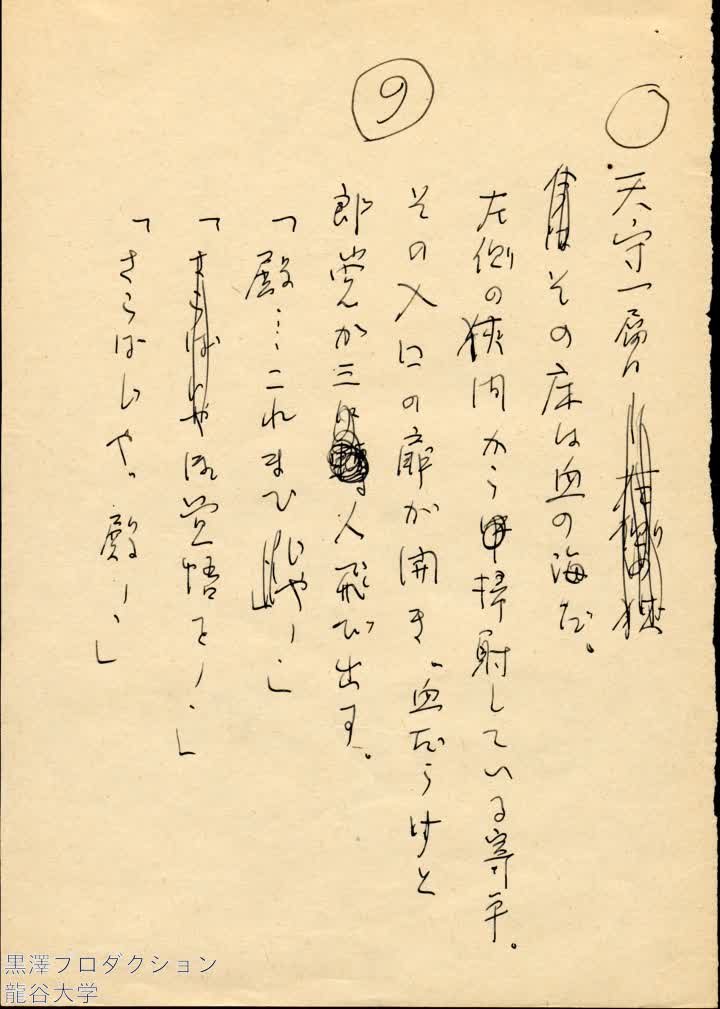 9
○天守一層
その床は血の海だ。
左側の狭間から掃射している寄手。
その入口の扉が開き、血だらけと
郎党が三人飛び出す。
「殿…これまでじゃ！」
「御覚悟を！」
「さらばじゃ、殿！」
黒澤プロダクション
龍谷大学